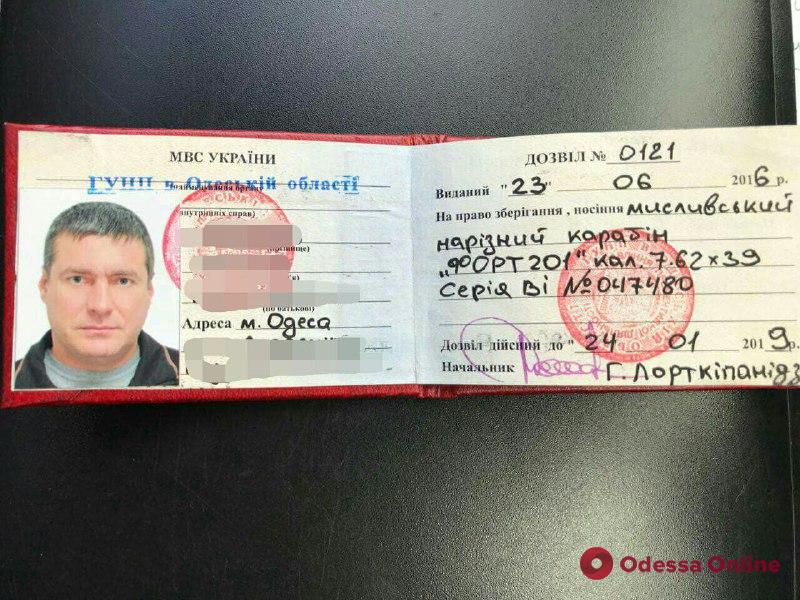 МВС УКРАЇНИ
ГУНП в Одеській області
внутрішніх справ)
(по батькові)
Адреса м. Одеса
ДОЗВІЛ № 0121
Виданий "23" 06 2016 р.
На право зберігання, носіння мисливський
нарізний карабін
„ФОРТ 201" кал. 7.62×39
Серія Ві №047480
Дозвіл дійсний до "24 01 2019р.
Начальник Г. Лорткіпанідз
Odessa Online